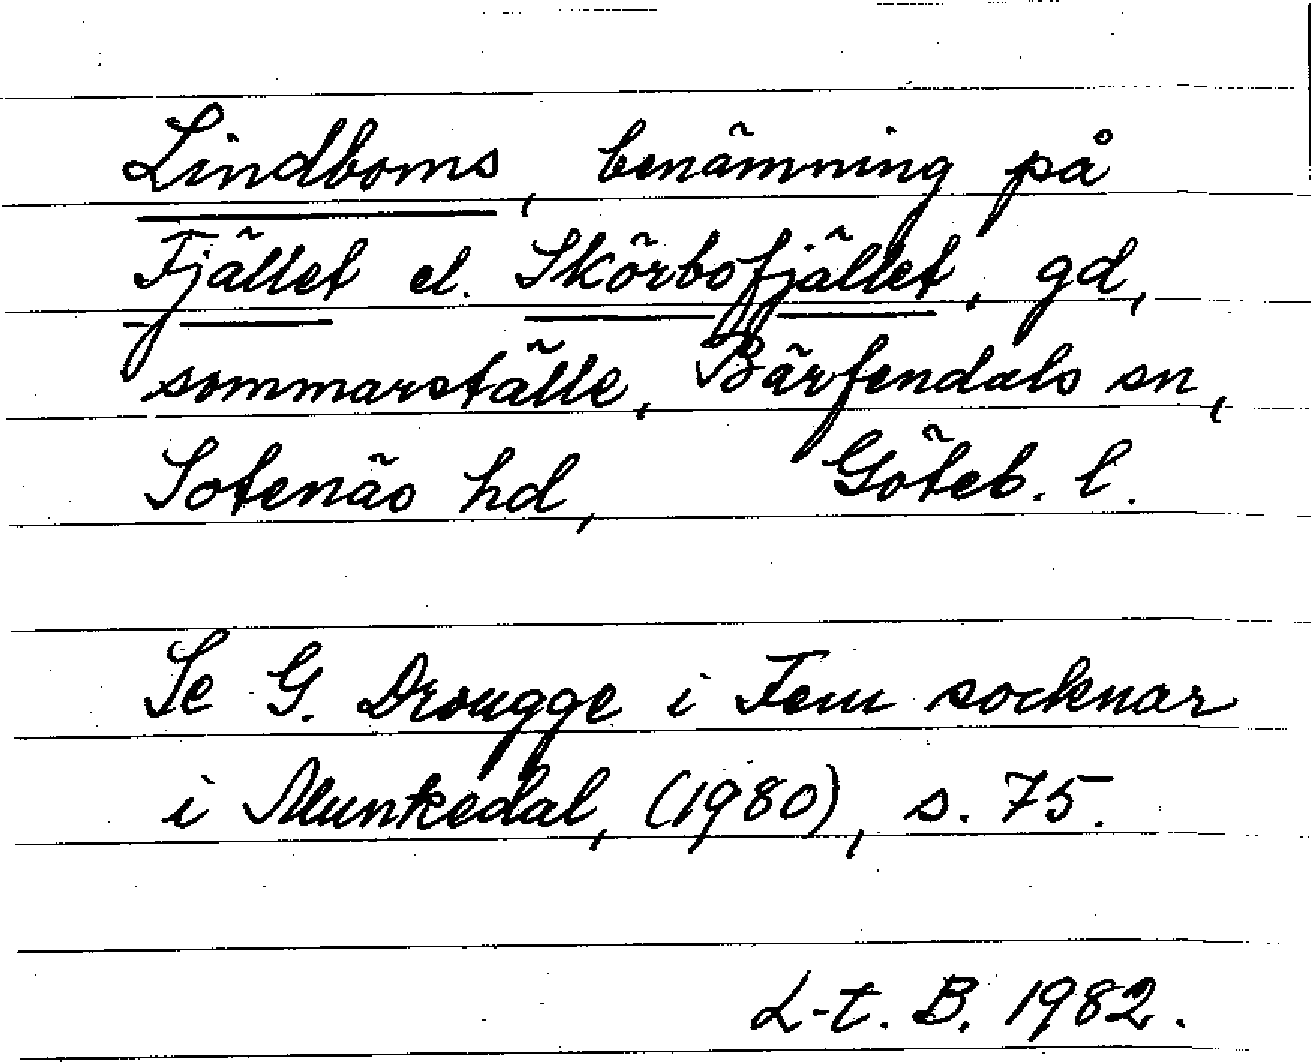 Lindboms, benämning på
Fjället el. Skörbofjället, gd,
sommarställe, Bärfendals sn,
Sotenäs hd, Göteb. l.
Se G. Drougge i Fem socknar
i Munkedal, (1980), s. 75.
L-t. B. 1982.